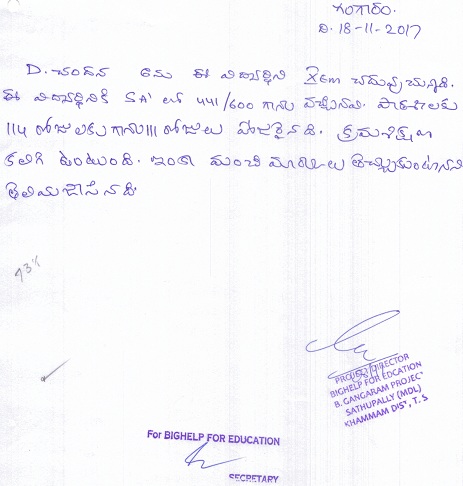 గంగారం.
ది. 18-11-2017
D. చందన అను ఈ విద్యార్థిని Xవ చదువుచున్నది.
ఈ విద్యార్థినికి SA1 లో 441/600 గాను వచ్చినవి. పాఠశాలకు
114 రోజులకు గాను 111 రోజులు హాజరైనది. క్రమశిక్షణ
కలిగి ఉంటుంది. ఇంకా మంచి మార్కులు తెచ్చుకుంటానని
తెలియజేసినది
73%
PROJECT DIRECTOR
BIGHELP FOR EDCATION
B. GANGARAM PROJECT
SATHUPALLY (MDL)
KHAMMAM DIST, T. S
For BIGHELP FOR EDUCATION
SECRETARY